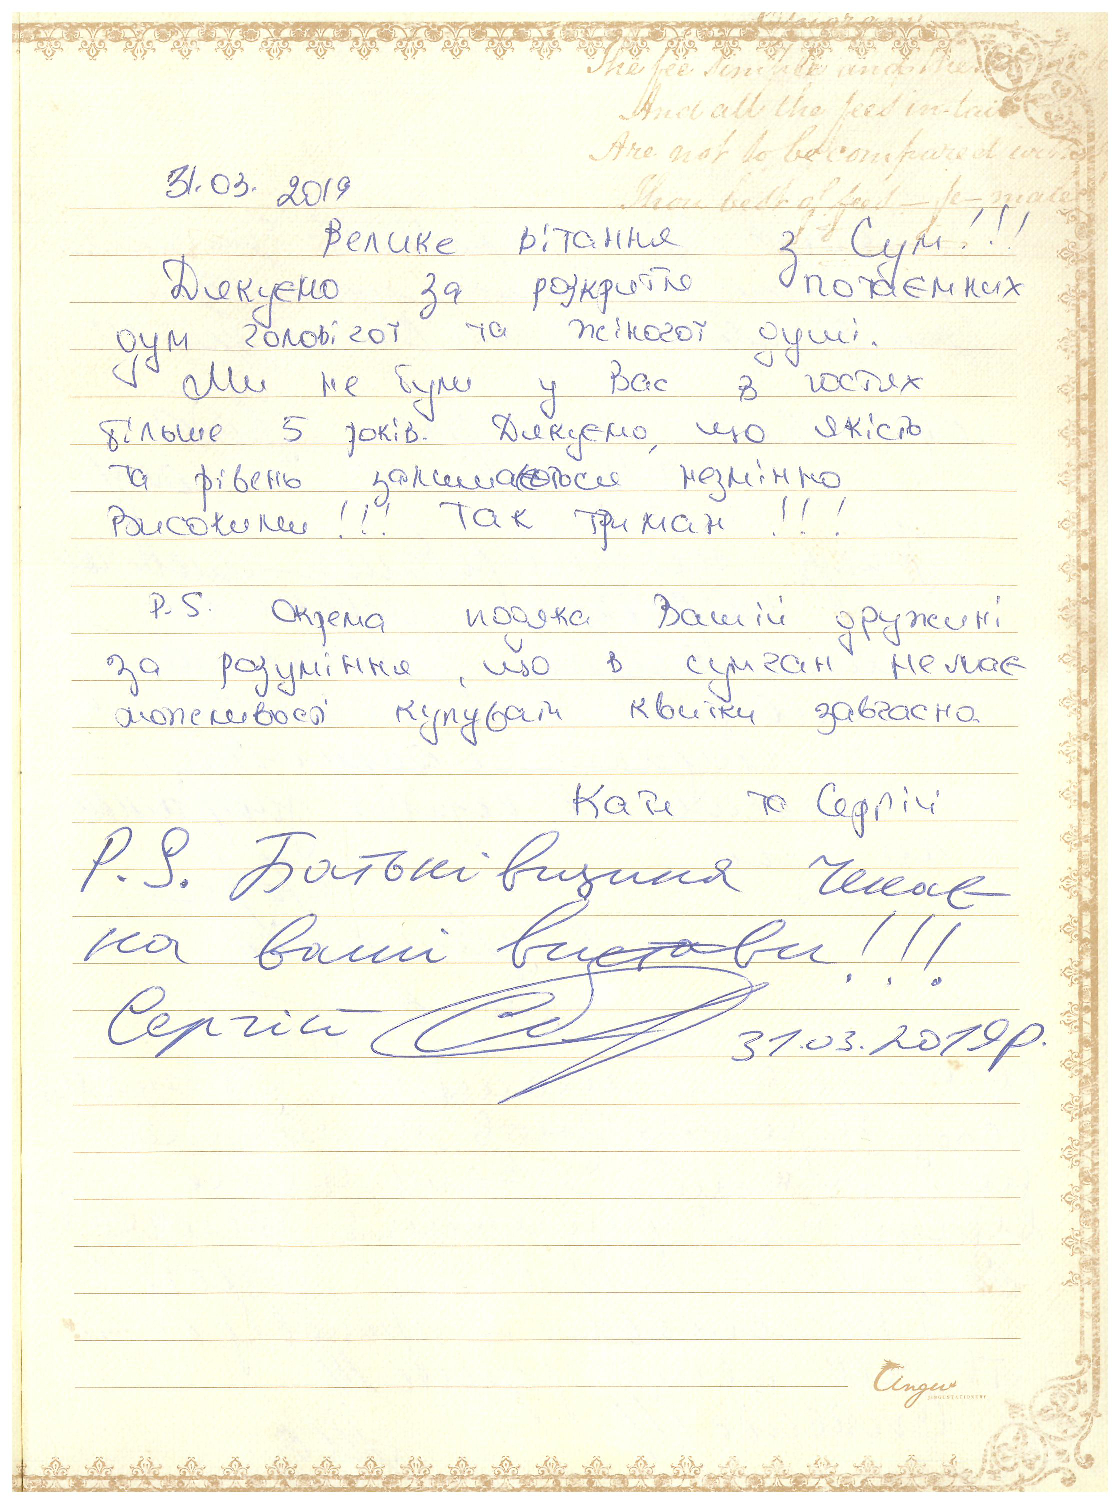 The fee simple and the
And all the fees in-tail
Are not to be compared with
Thou best of fees — fe-male
31.03. 2019
Велике вітання з Сум!!!
Дякуємо за розкриття потаємних
дум чоловічої та жіночої душі.
Ми не були у Вас в гостях
більше 5 років. Дякуємо, що якість
та рівень залишаються незмінно
високими!!! Так тримати!!!
P.S. Окрема подяка Вашій дружині
за розуміння, що в сумчан немає
можливості купувати квитки завчасно
Катя та Сергій
P.S. Батьківщина чекає
на ваші вистави!!!
Сергій
31.03.2019р.